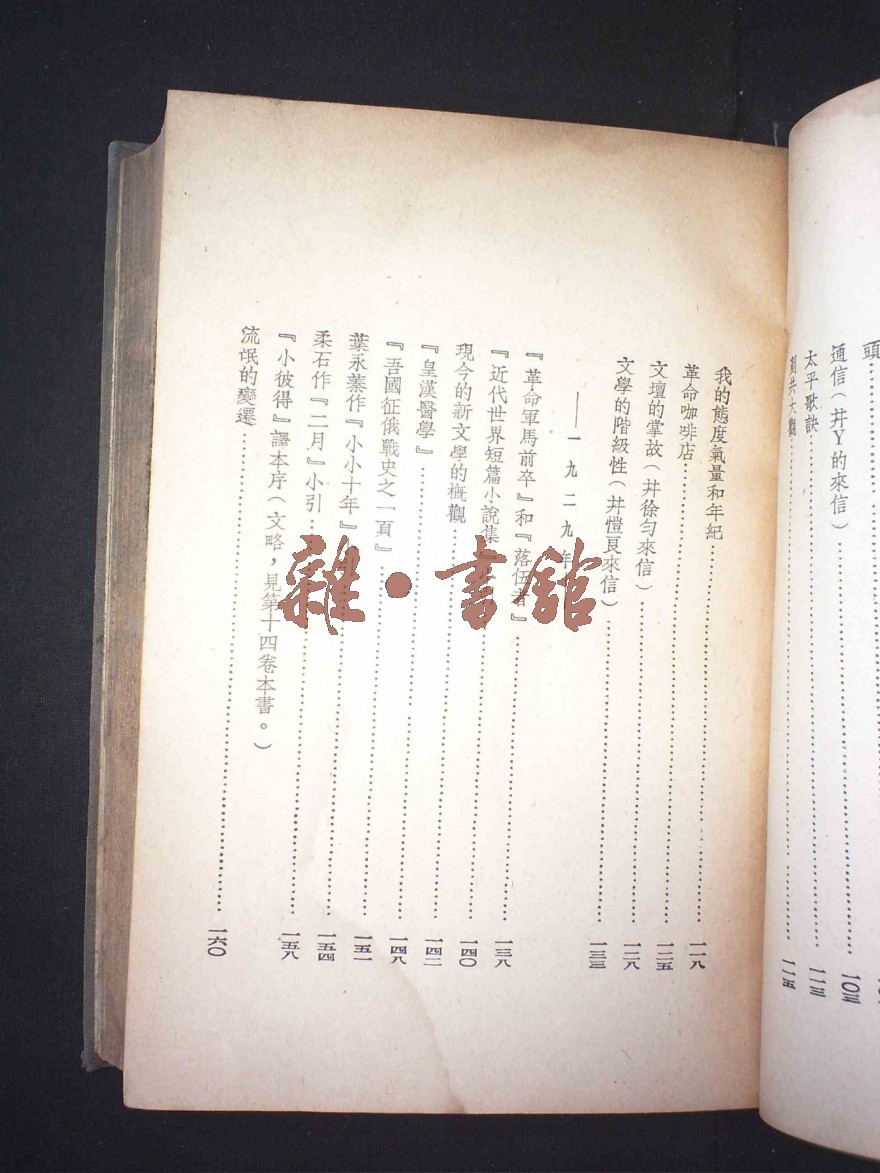 頭
通信（幷Y的來信）……一〇三
太平歌訣……一一三
剷共大觀……一一五
我的態度氣量和年紀……一一八
革命咖啡店……一二五
文壇的掌故（幷徐匀來信）……一二八
文學的階級性（幷愷良來信）……一三三
——一九二九年——
『革命軍馬前卒』和『落伍者』……一三八
『近代世界短篇小說集』……一四〇
現今的新文學的概觀……一四二
『皇漢醫學』……一四八
『吾國征俄戰史之一頁』……一五一
葉永蓁作『小小十年』……一五四
柔石作『二月』小引……一五八
『小彼得』譯本序（文略，見第十四卷本書。）
流氓的變遷……一六〇
雜·書館